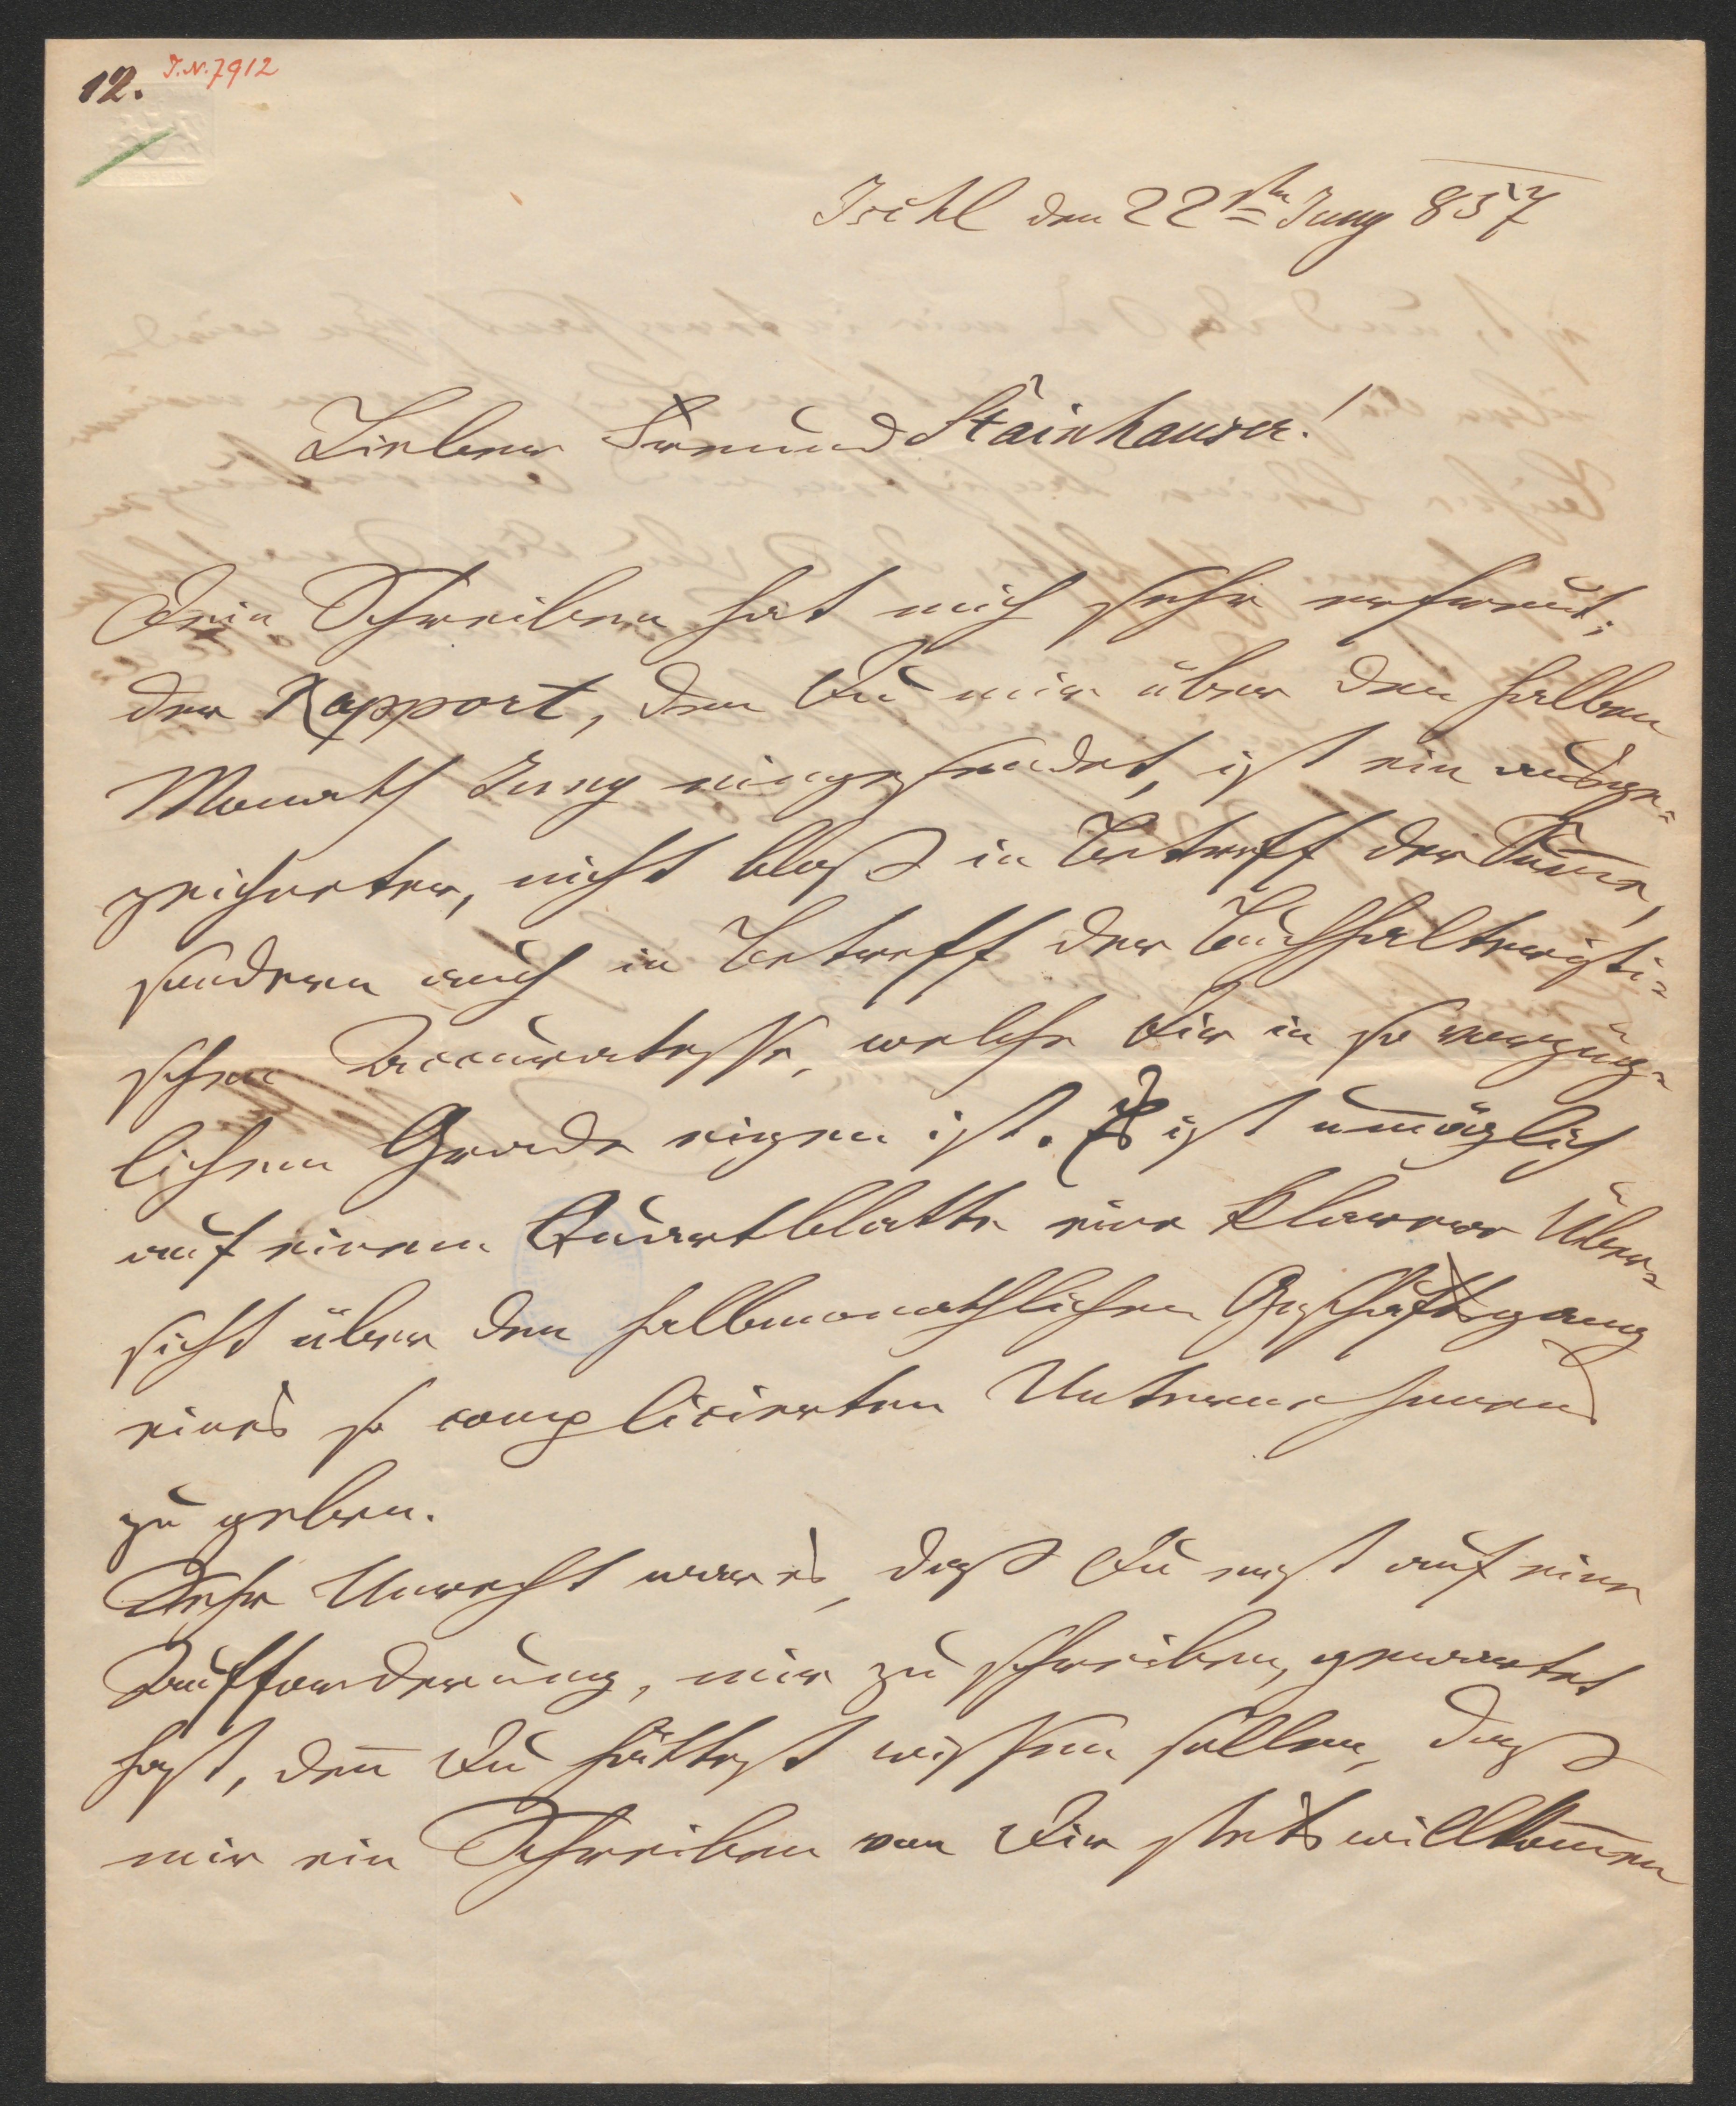 12. I.N. 7912
Ischl den 22ten Juny 857
Lieber Freund Stainhauser!
Dein Schreiben hat mich sehr erfreut;
der Rapport, den Du mir über den halben
Monath Juny eingesendet, ist ein ausge=
zeichneter, nicht bloß in Betreff der Sum̄e,
sondern auch in Betreff der Buchhalteristi=
schen Accuratesse, welche Dir in so vorzüg=
lichem Grade eigen ist. Es ist um̄öglich
auf einem Quartblatte eine klarere Über=
sicht über den halbmonathlichen Geschäftsgang
eines so complicierten Unternehmens
zu geben.
Sehr Unrecht war es, daß Du erst auf eine
Aufforderung, mir zu schreiben, gewartet
hast, den̄ Du hättest wissen sollen, daß
mir ein Schreiben von Dir stets willkom̄en